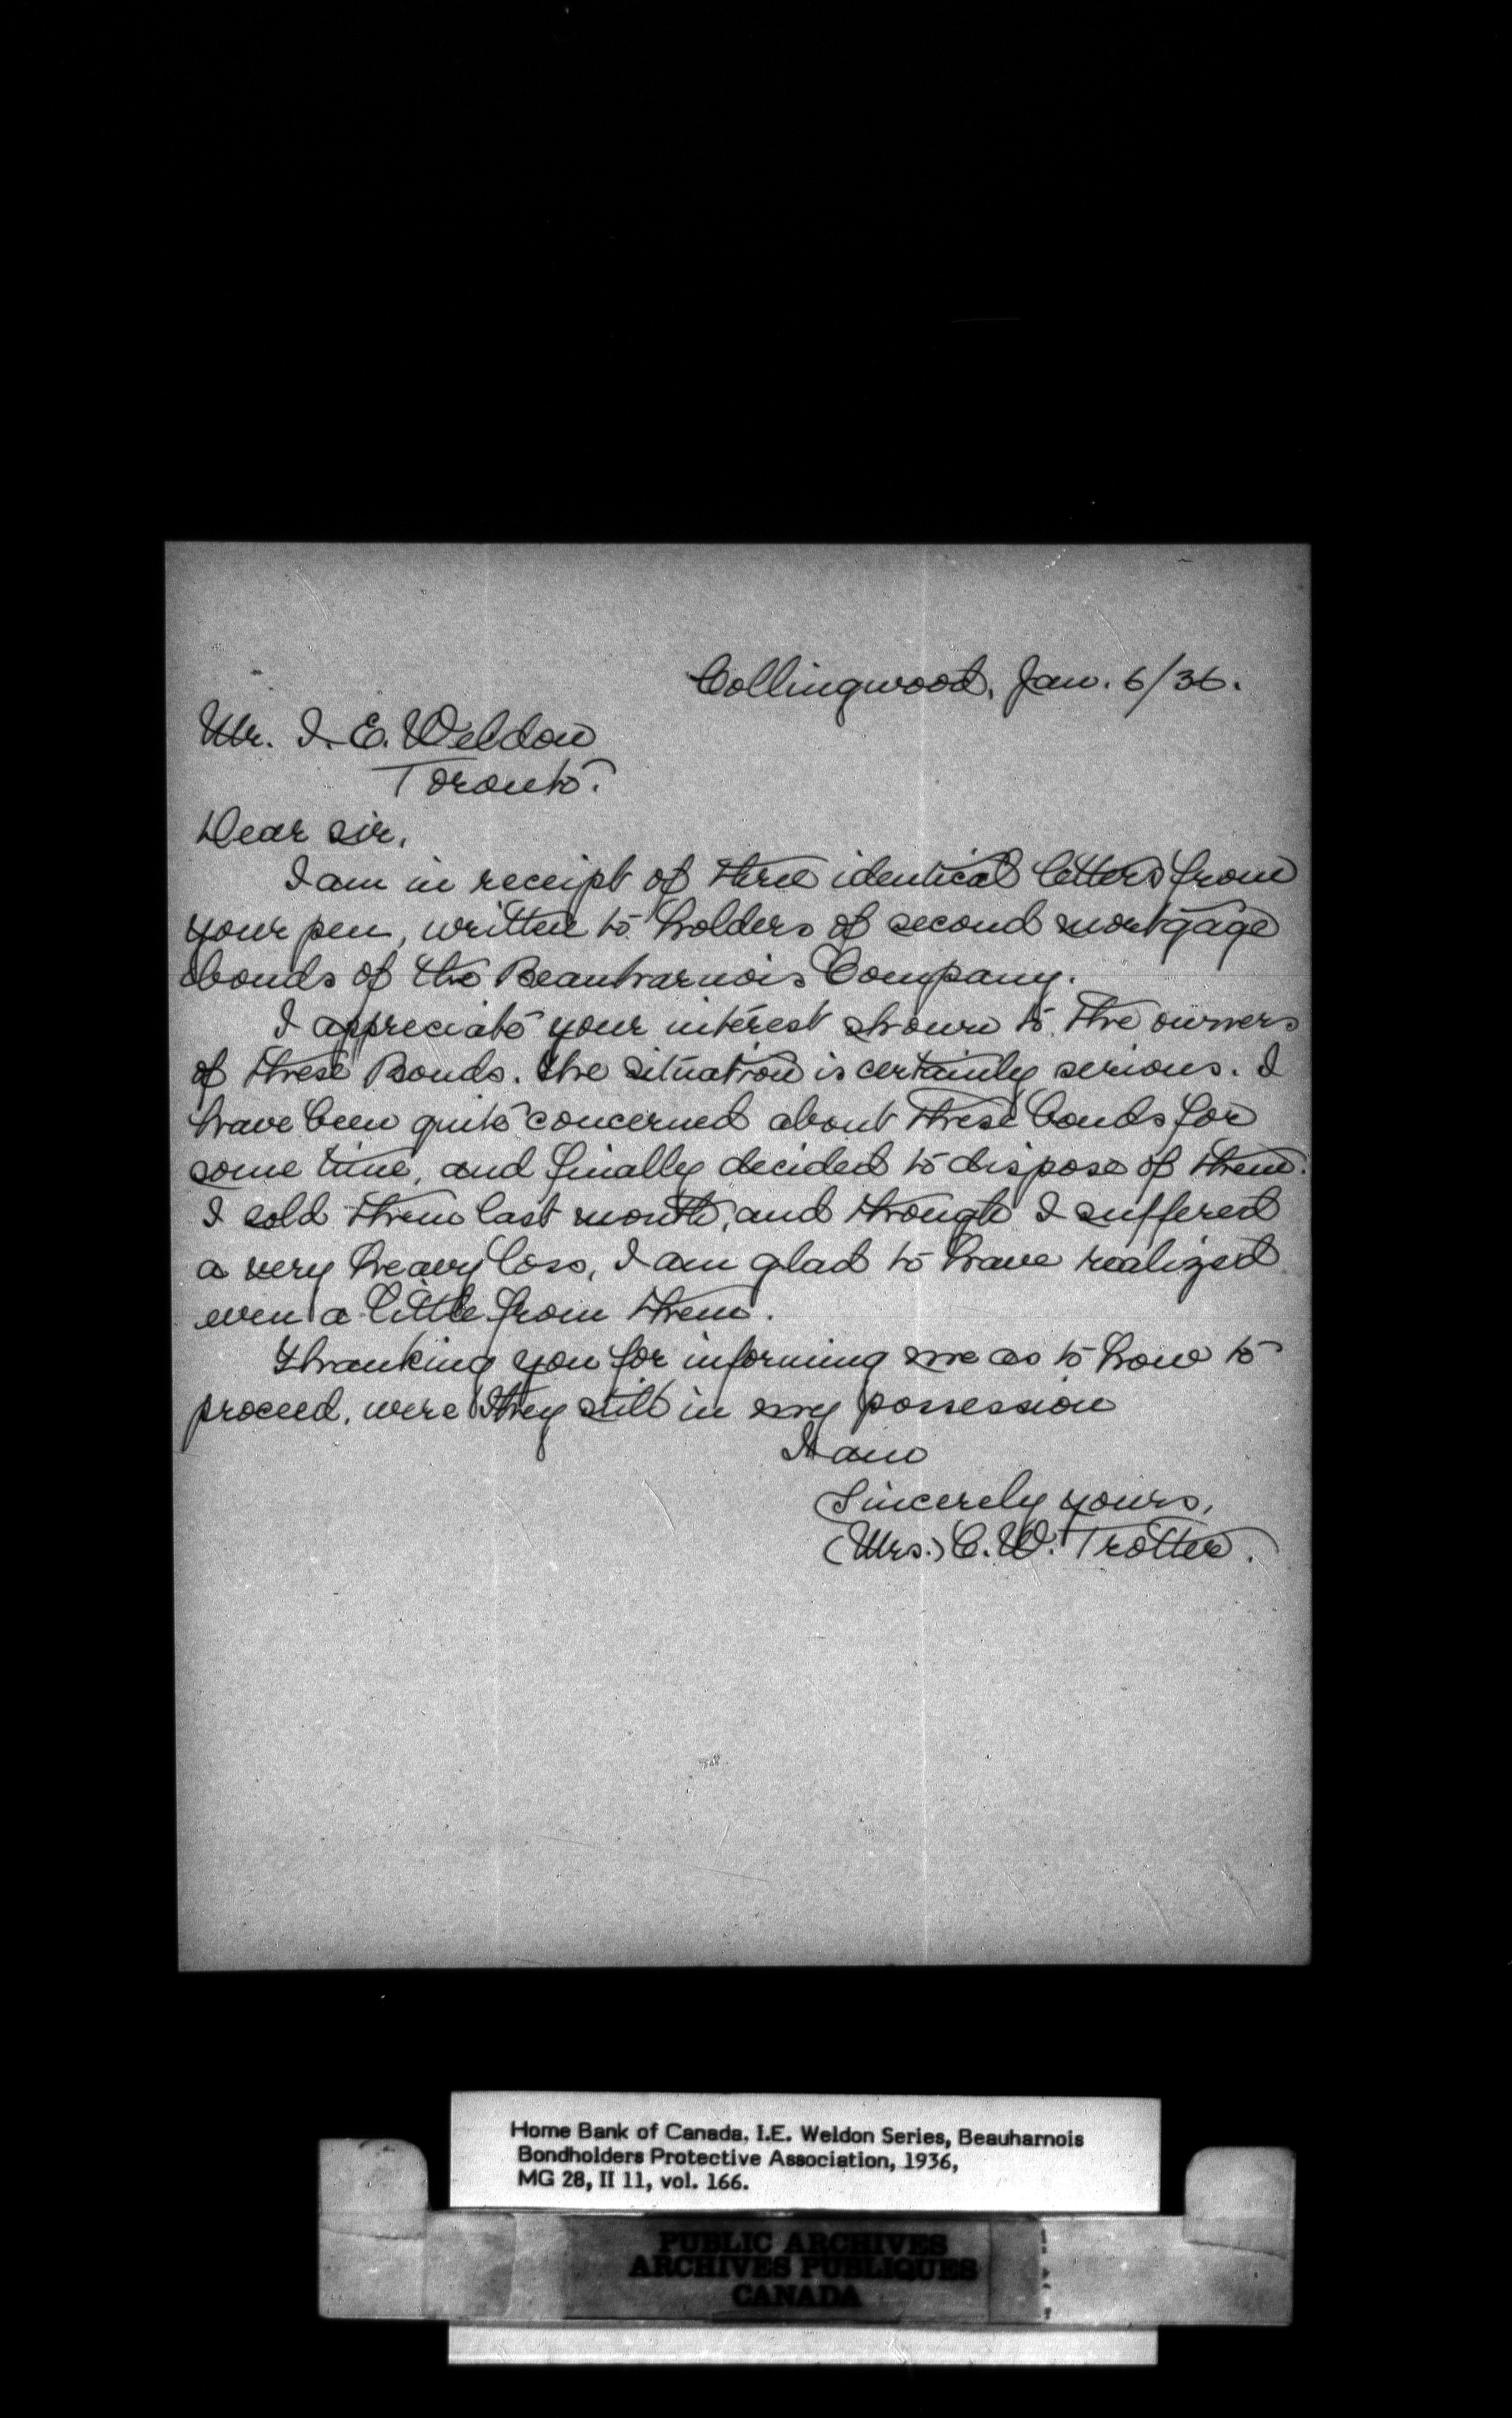 Collingwood, Jan. 6/36.
Mr. I. E. Weldon
Toronto.
Dear Sir,
I am in receipt of three identical letters from
your pen, written to holders of second mortgage
bonds of the Beauharnois Company.
I appreciate your interest shown to the owners
of these Bonds. The situation is certainly serious. I
have been quite concerned about these bonds for
some time, and finally decided to dispose of them.
I sold them last month, and though I suffered
a very heavy loss, I am glad to have realized
even a little from them.
Thanking you for informing me as to how to
proceed, were they still in my possession
I am
Sincerely yours,
(Mrs.) C. W. Trotter.
Home Bank of Canada. I.E. Weldon Series, Beauharnois
Bondholders Protective Association, 1936,
MG 28, II 11, vol. 166.
PUBLIC ARCHIVES
ARCHIVES PUBLIQUES
CANADA